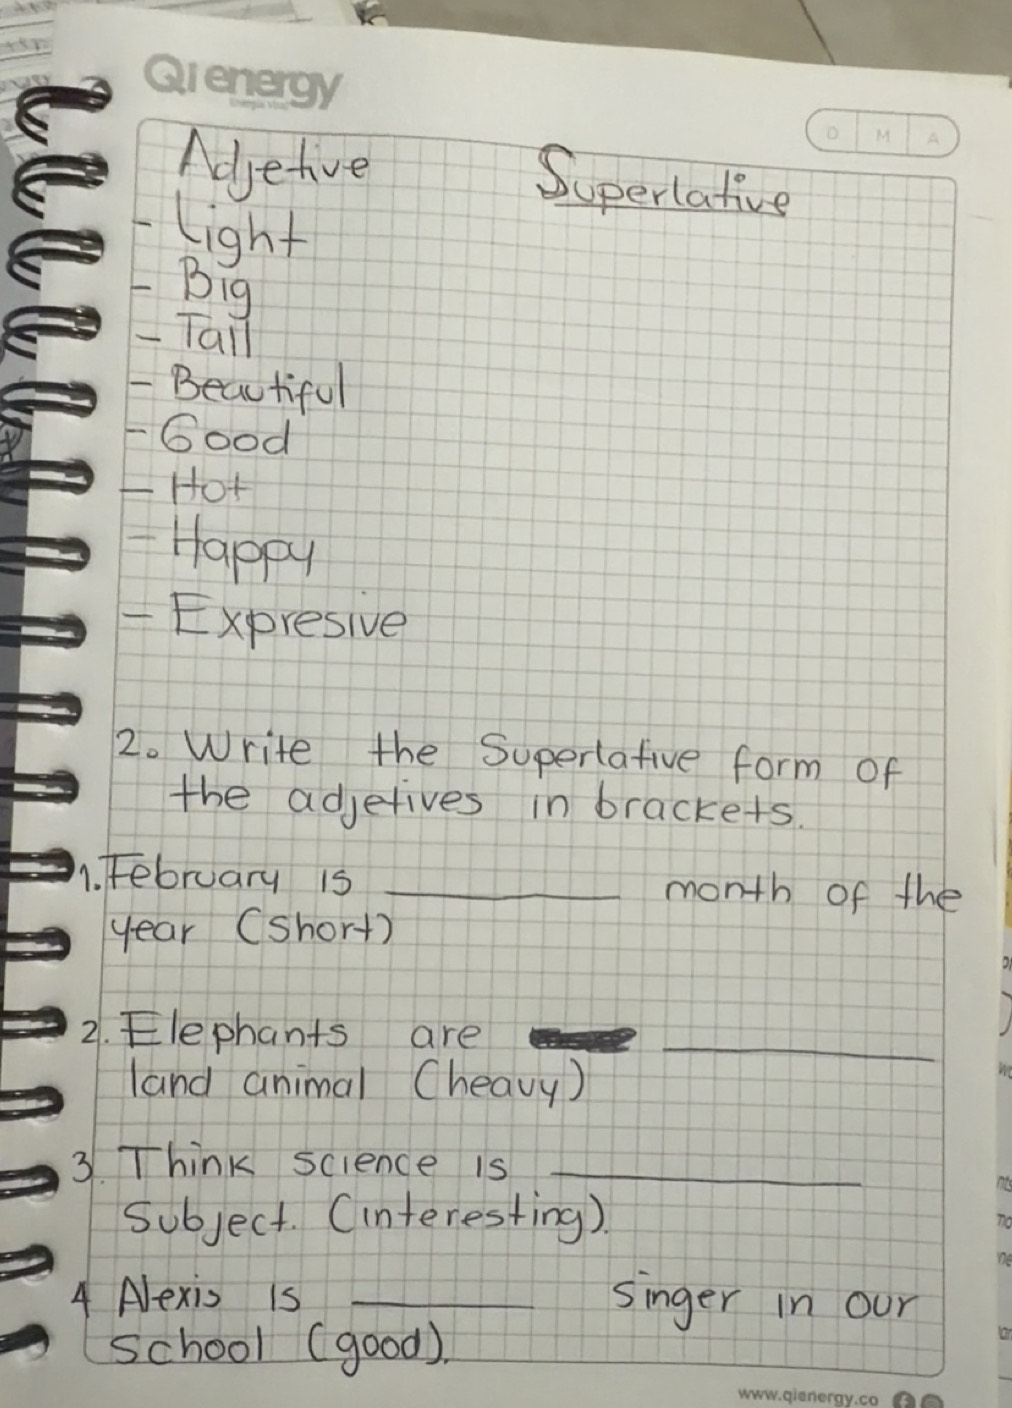 Qienergy
D M A
Adjetive Superlative
- Light
- Big
- Tall
- Beautiful
- Good
- Hot
- Happy
- Expresive
2. Write the Superlative form of
the adjetives in brackets.
1. February is ________ month of the
year (short)
2. Elephants are ________
land animal (heavy)
3. Think science is ________
Subject. (interesting).
4 Alexis is ________ Singer in our
school (good).
www.qienergy.co